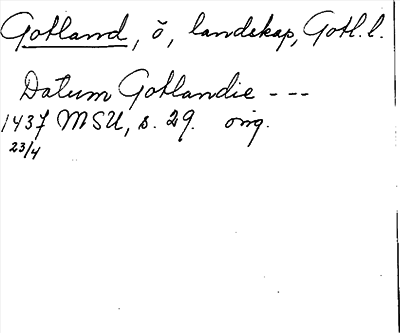 Gotland, ö, landskap, Gotl. l.
Datum Gotlandie - - -
1437 MSU, s. 29. orig.
23/4